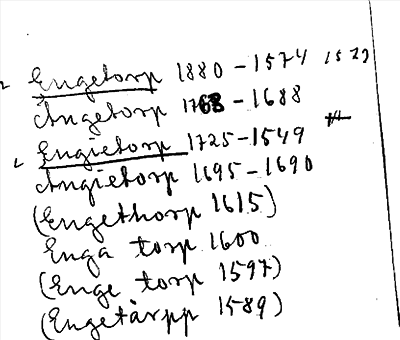 Engetorp 1880-1574 1573
Angetorp 1768-1688
Engietorp 1725-1549
Angietorp 1695-1690
(Engethorp 1615)
Enga torp 1600
(Enge torp 1597)
(Engetårpp 1589)